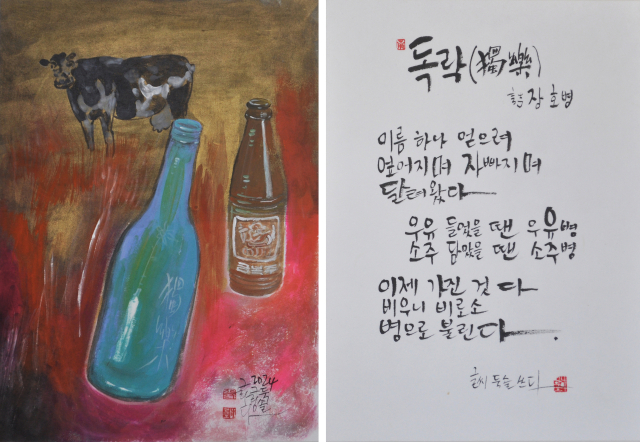 獨樂
2024
독락(獨樂)
詩 장호병
이름 하나 얻으려
엎어지며 자빠지며
달려왔다
우유 들었을 땐 우유병
소주 담았을 땐 소주병
이제 가진 것 다
비우니 비로소
병으로 불린다.
글씨